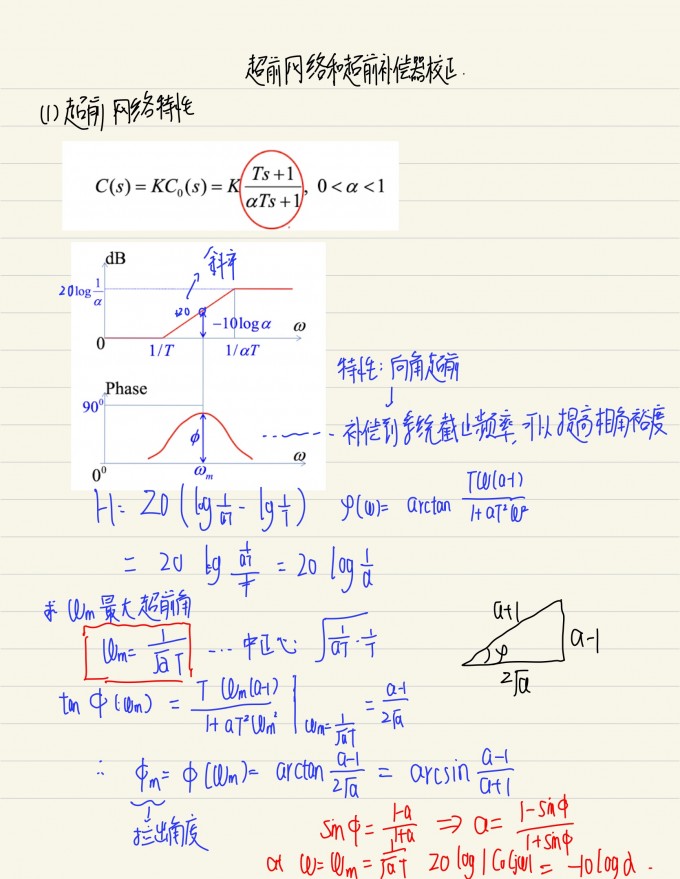 超前网络和超前补偿器校正.
(1) 超前网络特性
C(s) = KC₀(s) = K (Ts+1)/(αTs+1), 0 < α < 1
dB
斜率
20log 1/α
+20
-10logα
ω
0
1/T
1/αT
Phase
特性: 向角超前
90⁰
φ
补偿到系统截止频率, 可以提高相角裕度
ω
0⁰
ωm
H= 20 ( lg 1/aT - lg 1/T ) φ(ω)= arctan Tω(a-1)/(1+aT²ω²)
= 20 lg (1/aT)/(1/T) = 20 log 1/α
求 ωm 最大超前角
ωm= 1/(√a T) ... 中心: √(1/aT · 1/T)
a+1
a-1
φ
2√a
tan φ(ωm) = T ωm(a-1)/(1+aT²ωm²) | ωm= 1/(√a T) = (a-1)/(2√a)
∴ φm= φ(ωm)= arctan (a-1)/(2√a) = arcsin (a-1)/(a+1)
角度
sinφ= (1-a)/(1+a) ⇒ a= (1-sinφ)/(1+sinφ)
at ω=ωm = 1/(√a T) 20 log|C₀(jω)| = -10 log α.